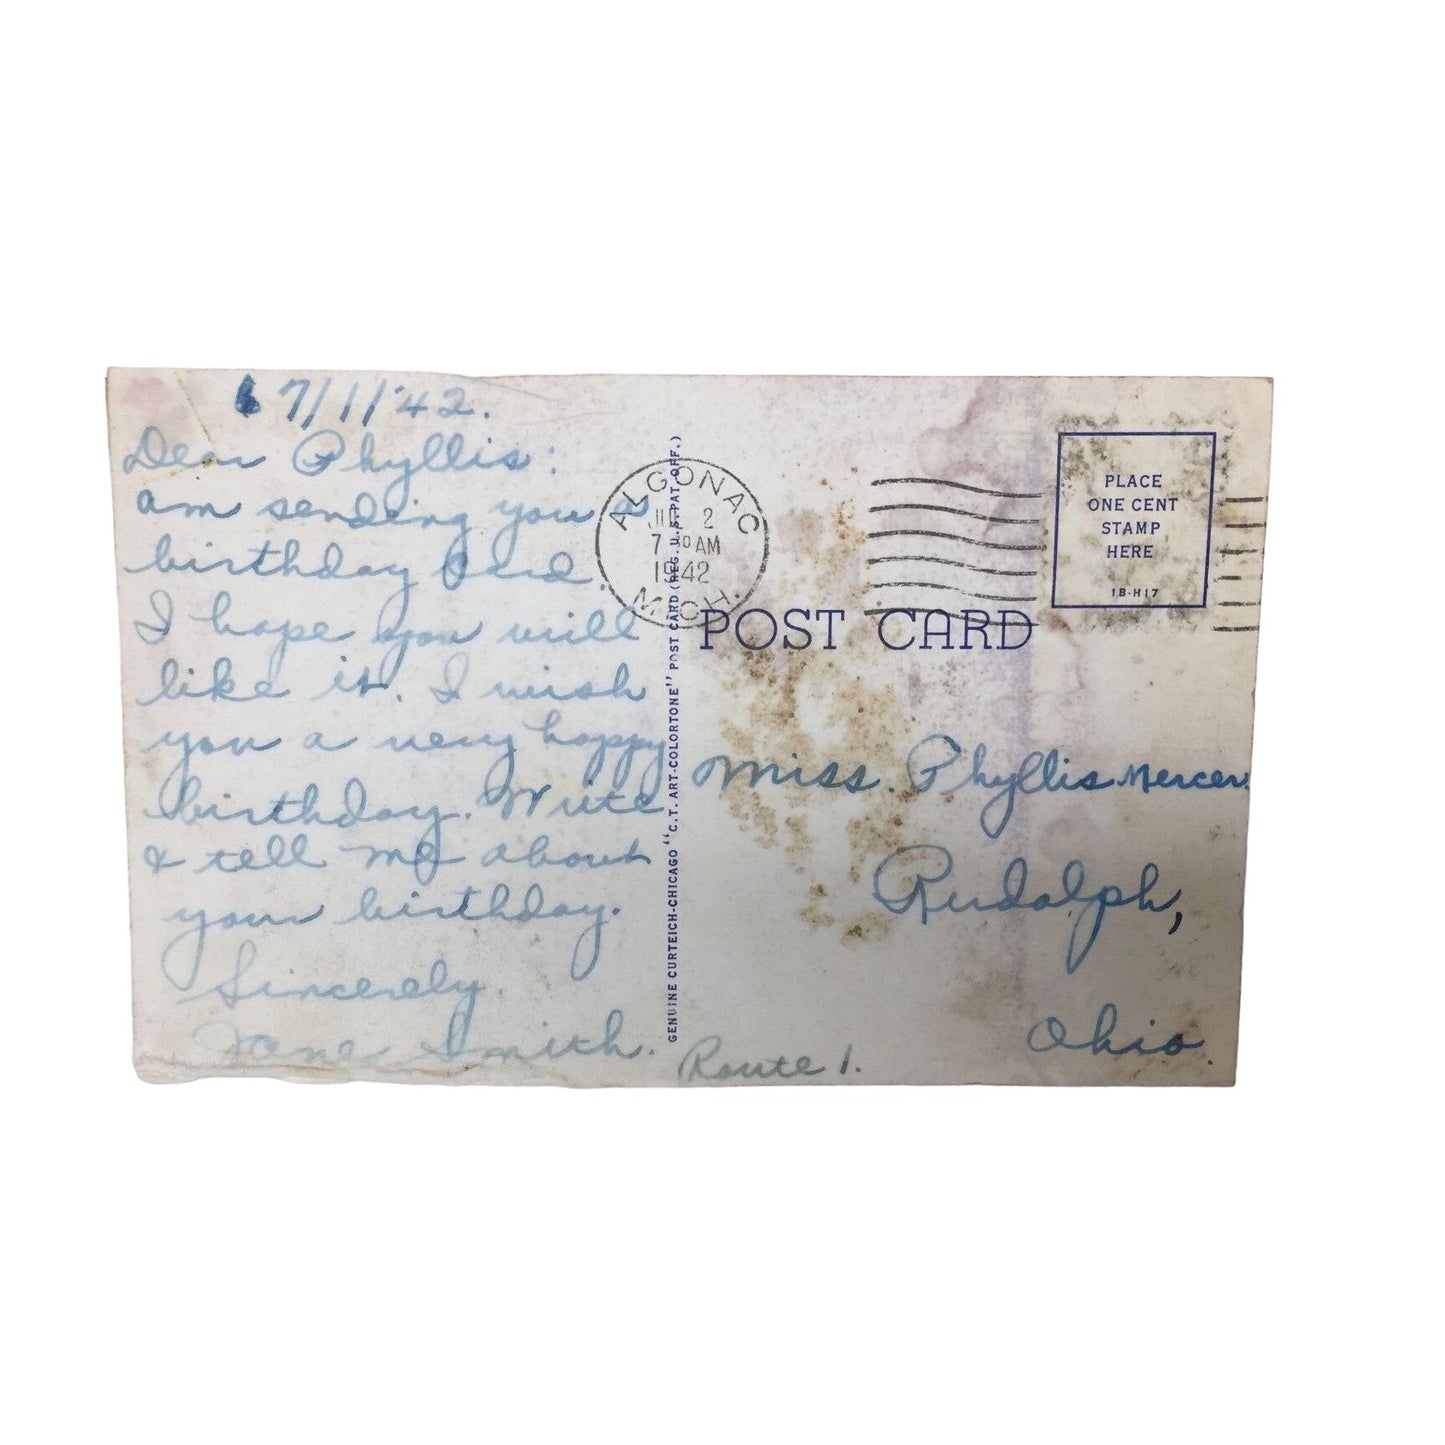 7/1/'42.
Dear Phyllis:
am sending you a
birthday card.
I hope you will
like it. I wish
you a very happy
birthday. Write
& tell me about
your birthday.
Sincerely,
Jane Smith.
GENUINE CURTEICH-CHICAGO "C.T. ART-COLORTONE" POST CARD (REG. U.S. PAT. OFF.)
ALGONAC
JUL 2
7 AM
1942
MICH.
PLACE
ONE CENT
STAMP
HERE
1B-H17
POST CARD
Miss. Phyllis Mercer.
Rudolph,
Ohio.
Route 1.